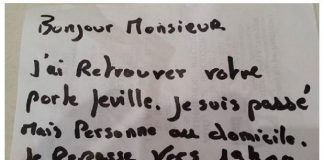 Bonjour Monsieur
J'ai Retrouver votre
porte feville. Je suis passé
Mais Personne au domicile.
Je Repasse vers